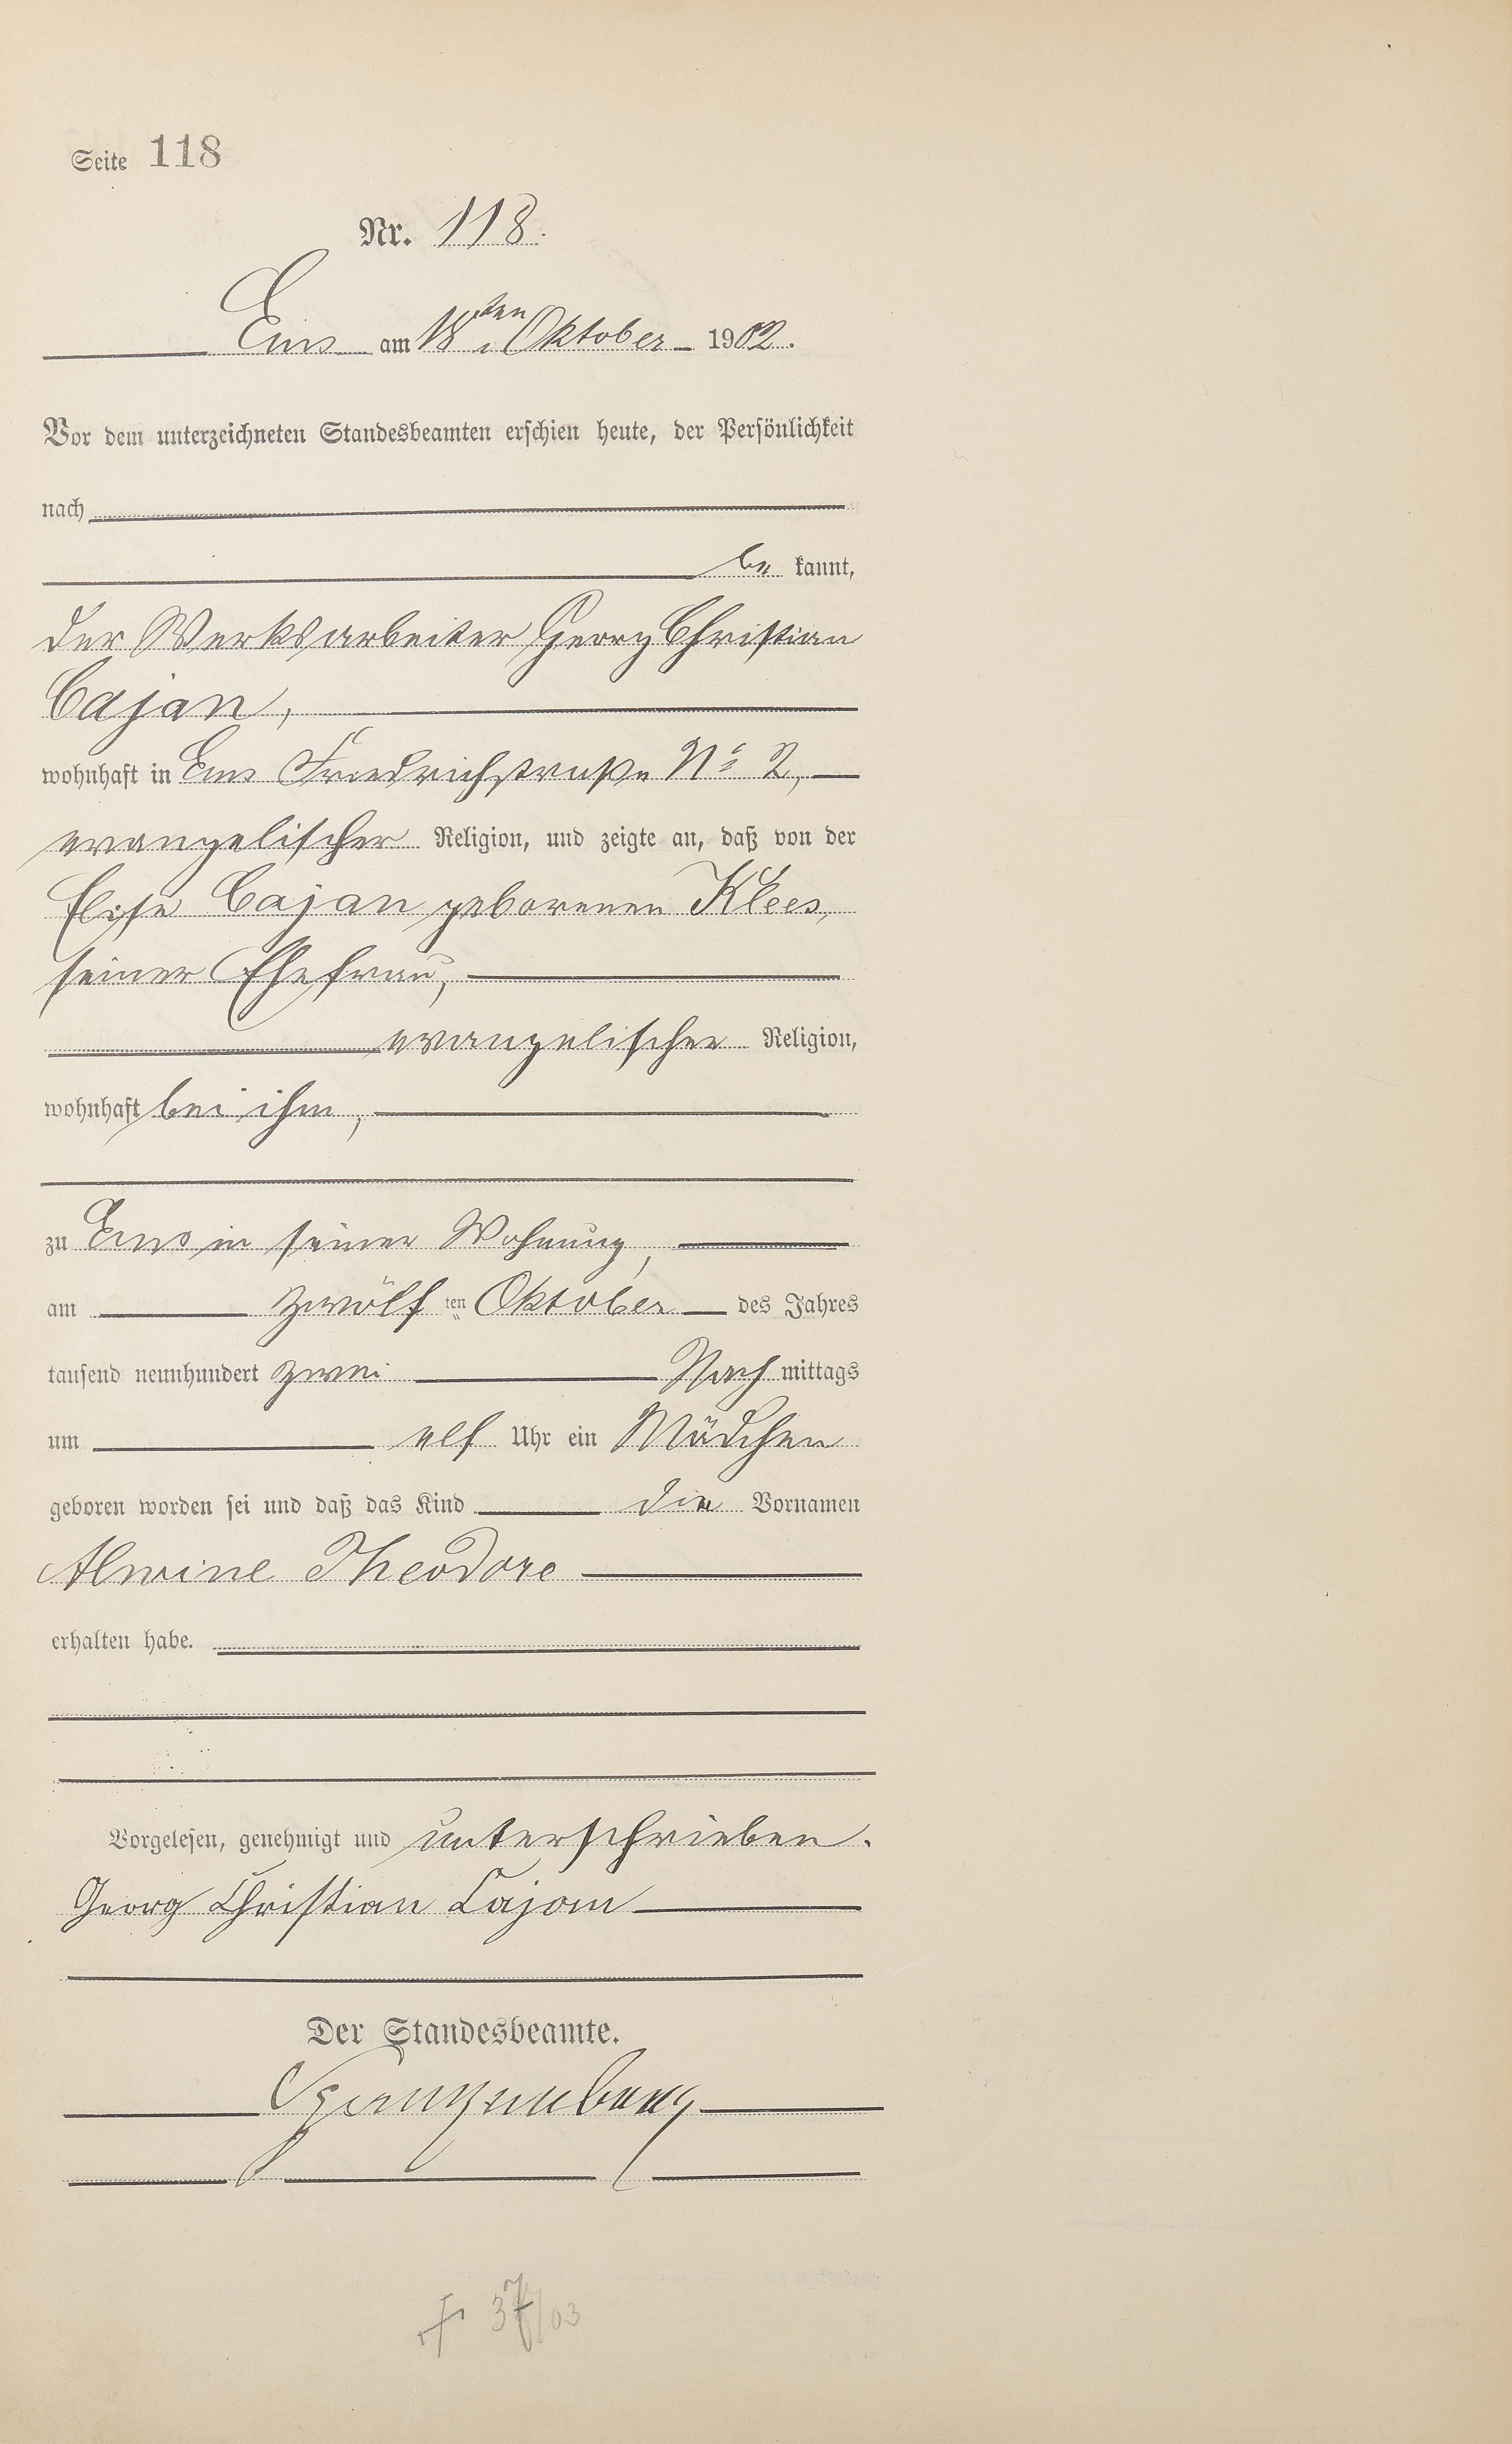 Seite 118
Nr. 118.
Ems am 18ten Oktober 1902.
Vor dem unterzeichneten Standesbeamten erschien heute, der Persönlichkeit
nach
be kannt,
der Werksarbeiter Georg Christian
Cajan,
wohnhaft in Ems Friedrichstraße No 2,
evangelischer Religion, und zeigte an, daß von der
Elise Cajan geborenen Klees,
seiner Ehefrau,
evangelischer Religion,
wohnhaft bei ihm,
zu Ems in seiner Wohnung,
am zwölf ten Oktober des Jahres
tausend neunhundert zwei Nach mittags
um elf Uhr ein Mädchen
geboren worden sei und daß das Kind die Vornamen
Alwine Theodore
erhalten habe.
Vorgelesen, genehmigt und unterschrieben.
Georg Christian Cajan
Der Standesbeamte.
Spangenberg
† 37/03